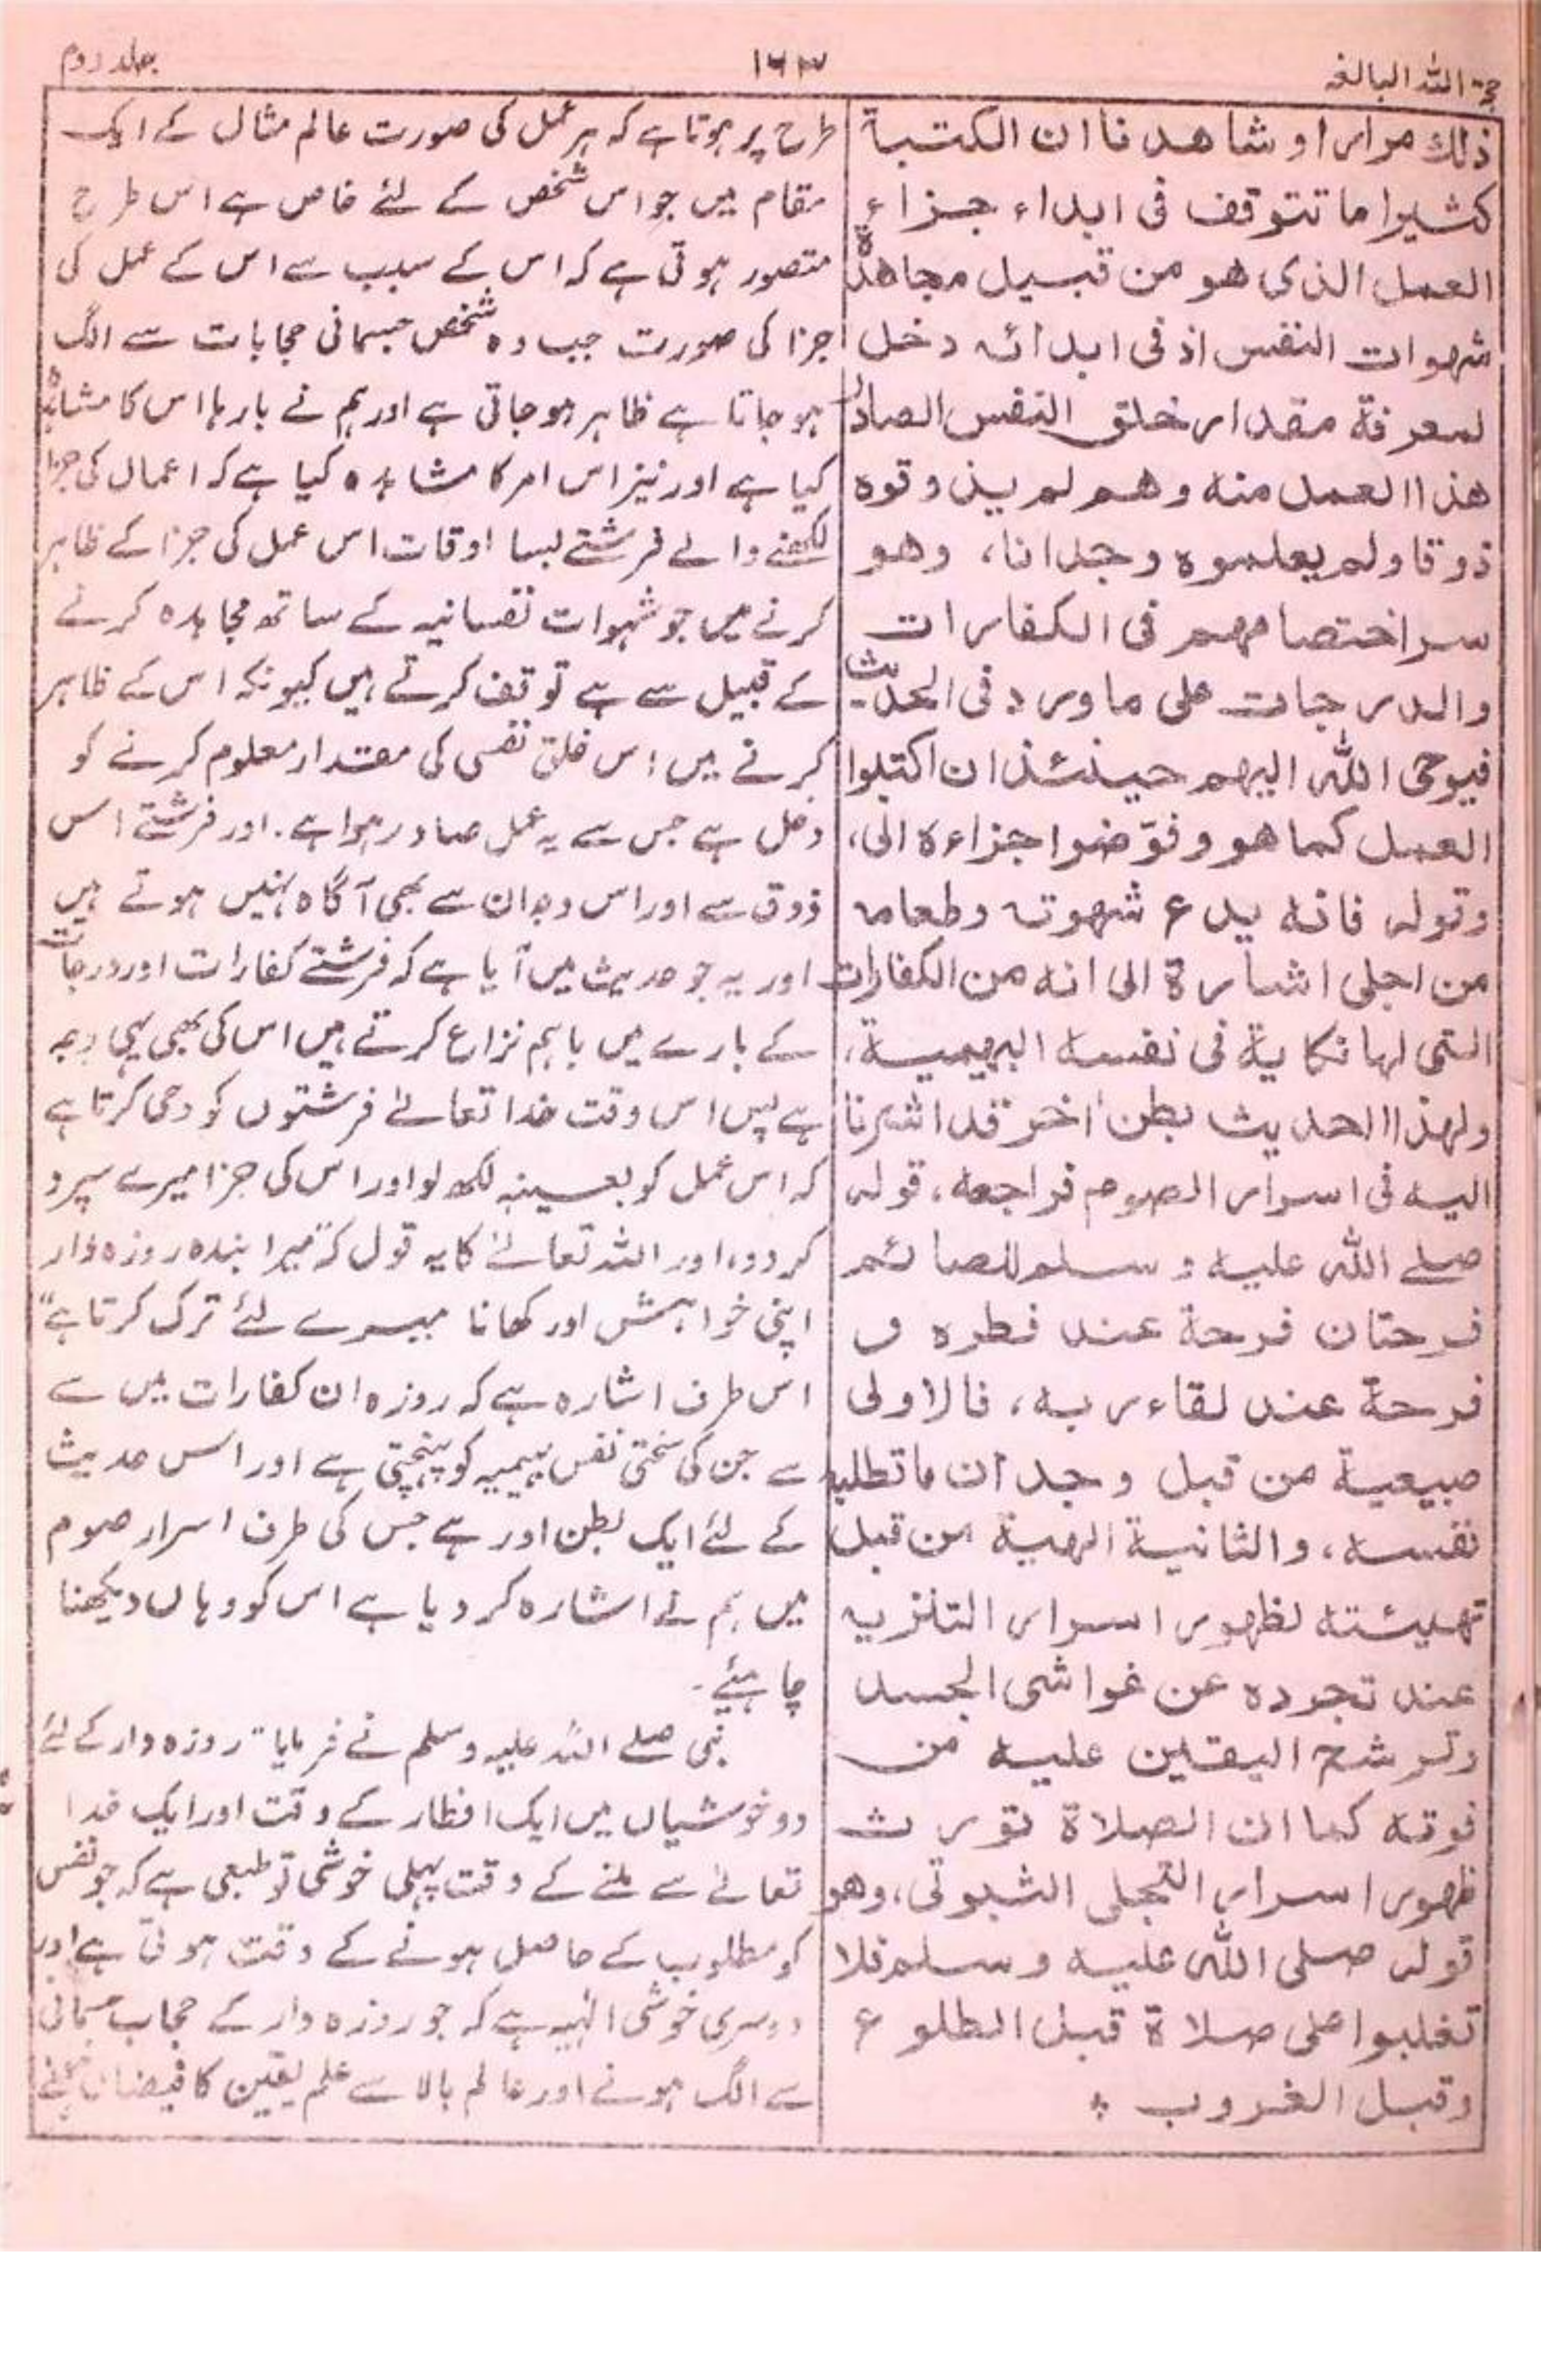 حجۃ اللہ البالغہ
۱۶۳
جلد دوم
ذلك مرارا و شاهدنا ان الكتبة
كثيرا ما تتوقف فى ابداء جزاء
العمل الذى هو من قبيل مجاهدة
شهوات النفس اذ فى ابدائه دخل
لمعرفة مقدار خلق النفس الصادر
هذا العمل منه وهم لم يذوقوه
ذوقا ولم يعلموه وجدانا، وهو
سر اختصامهم فى الكفارات
والدرجات على ما ورد فى الحديث
فيوحى الله اليهم حينئذ ان اكتبوا
العمل كما هو وفوّضوا جزاءه الى،
وقوله فانه يدع شهوته وطعامه
من اجلى اشارة الى انه من الكفارات
التى لها نكاية فى نفسه البهيمية،
ولهذا الحديث بطن اخر قد اشرنا
اليه فى اسرار الصوم فراجعه، قوله
صلے الله عليه و سلم للصائم
فرحتان فرحة عند فطره و
فرحة عند لقاء ربه، فالاولى
طبيعية من قبل وجدان ما تطلبه
نفسه، والثانية الهية من قبل
تهيئته لظهور اسرار التنزيه
عند تجرده عن غواشى الجسد
وترشح اليقين عليه من
فوقه كما ان الصلاة تورث
ظهور اسرار التجلى الثبوتى، وهو
قوله صلى الله عليه وسلم فلا
تغلبوا على صلاة قبل الطلوع
وقبل الغروب ؞
طرح پر ہوتا ہے کہ ہر عمل کی صورت عالم مثال کے ایک
مقام میں جو اس شخص کے لئے خاص ہے اس طرح
متصور ہوتی ہے کہ اس کے سبب سے اس کے عمل کی
جزا کی صورت جب وہ شخص جسمانی حجابات سے الگ
ہو جاتا ہے ظاہر ہو جاتی ہے اور ہم نے بارہا اس کا مشاہدہ
کیا ہے اور نیز اس امر کا مشاہدہ کیا ہے کہ اعمال کی جزا
لکھنے والے فرشتے بسا اوقات اس عمل کی جزا کے ظاہر
کرنے میں جو شہوات نفسانیہ کے ساتھ مجاہدہ کرنے
کے قبیل سے ہے توقف کرتے ہیں کیونکہ اس کے ظاہر
کرنے میں اس خلق نفسی کی مقدار معلوم کرنے کو
دخل ہے جس سے یہ عمل صادر ہوا ہے۔ اور فرشتے اس
ذوق سے اور اس وجدان سے بھی آگاہ نہیں ہوتے ہیں
اور یہ جو حدیث میں آیا ہے کہ فرشتے کفارات اور درجات
کے بارے میں باہم نزاع کرتے ہیں اس کی بھی یہی وجہ
ہے پس اس وقت خدا تعالےٰ فرشتوں کو وحی کرتا ہے
کہ اس عمل کو بعینہٖ لکھ لو اور اس کی جزا میرے سپرد
کر دو، اور اللہ تعالےٰ کا یہ قول کہ "میرا بندہ روزہ دار
اپنی خواہش اور کھانا میرے لئے ترک کرتا ہے"
اس طرف اشارہ ہے کہ روزہ ان کفارات میں سے
ہے جن کی سختی نفس بہیمیہ کو پہنچتی ہے اور اس حدیث
کے لئے ایک بطن اور ہے جس کی طرف اسرار صوم
میں ہم نے اشارہ کر دیا ہے اس کو وہاں دیکھنا
چاہئے۔
نبی صلے اللہ علیہ وسلم نے فرمایا "روزہ دار کے لئے
دو خوشیاں ہیں ایک افطار کے وقت اور ایک خدا
تعالےٰ سے ملنے کے وقت پہلی خوشی تو طبعی ہے کہ جو نفس
کو مطلوب کے حاصل ہونے کے وقت ہوتی ہے اور
دوسری خوشی الٰہیہ ہے کہ جو روزہ دار کے حجاب جسمانی
سے الگ ہونے اور عالم بالا سے علم یقین کا فیضان